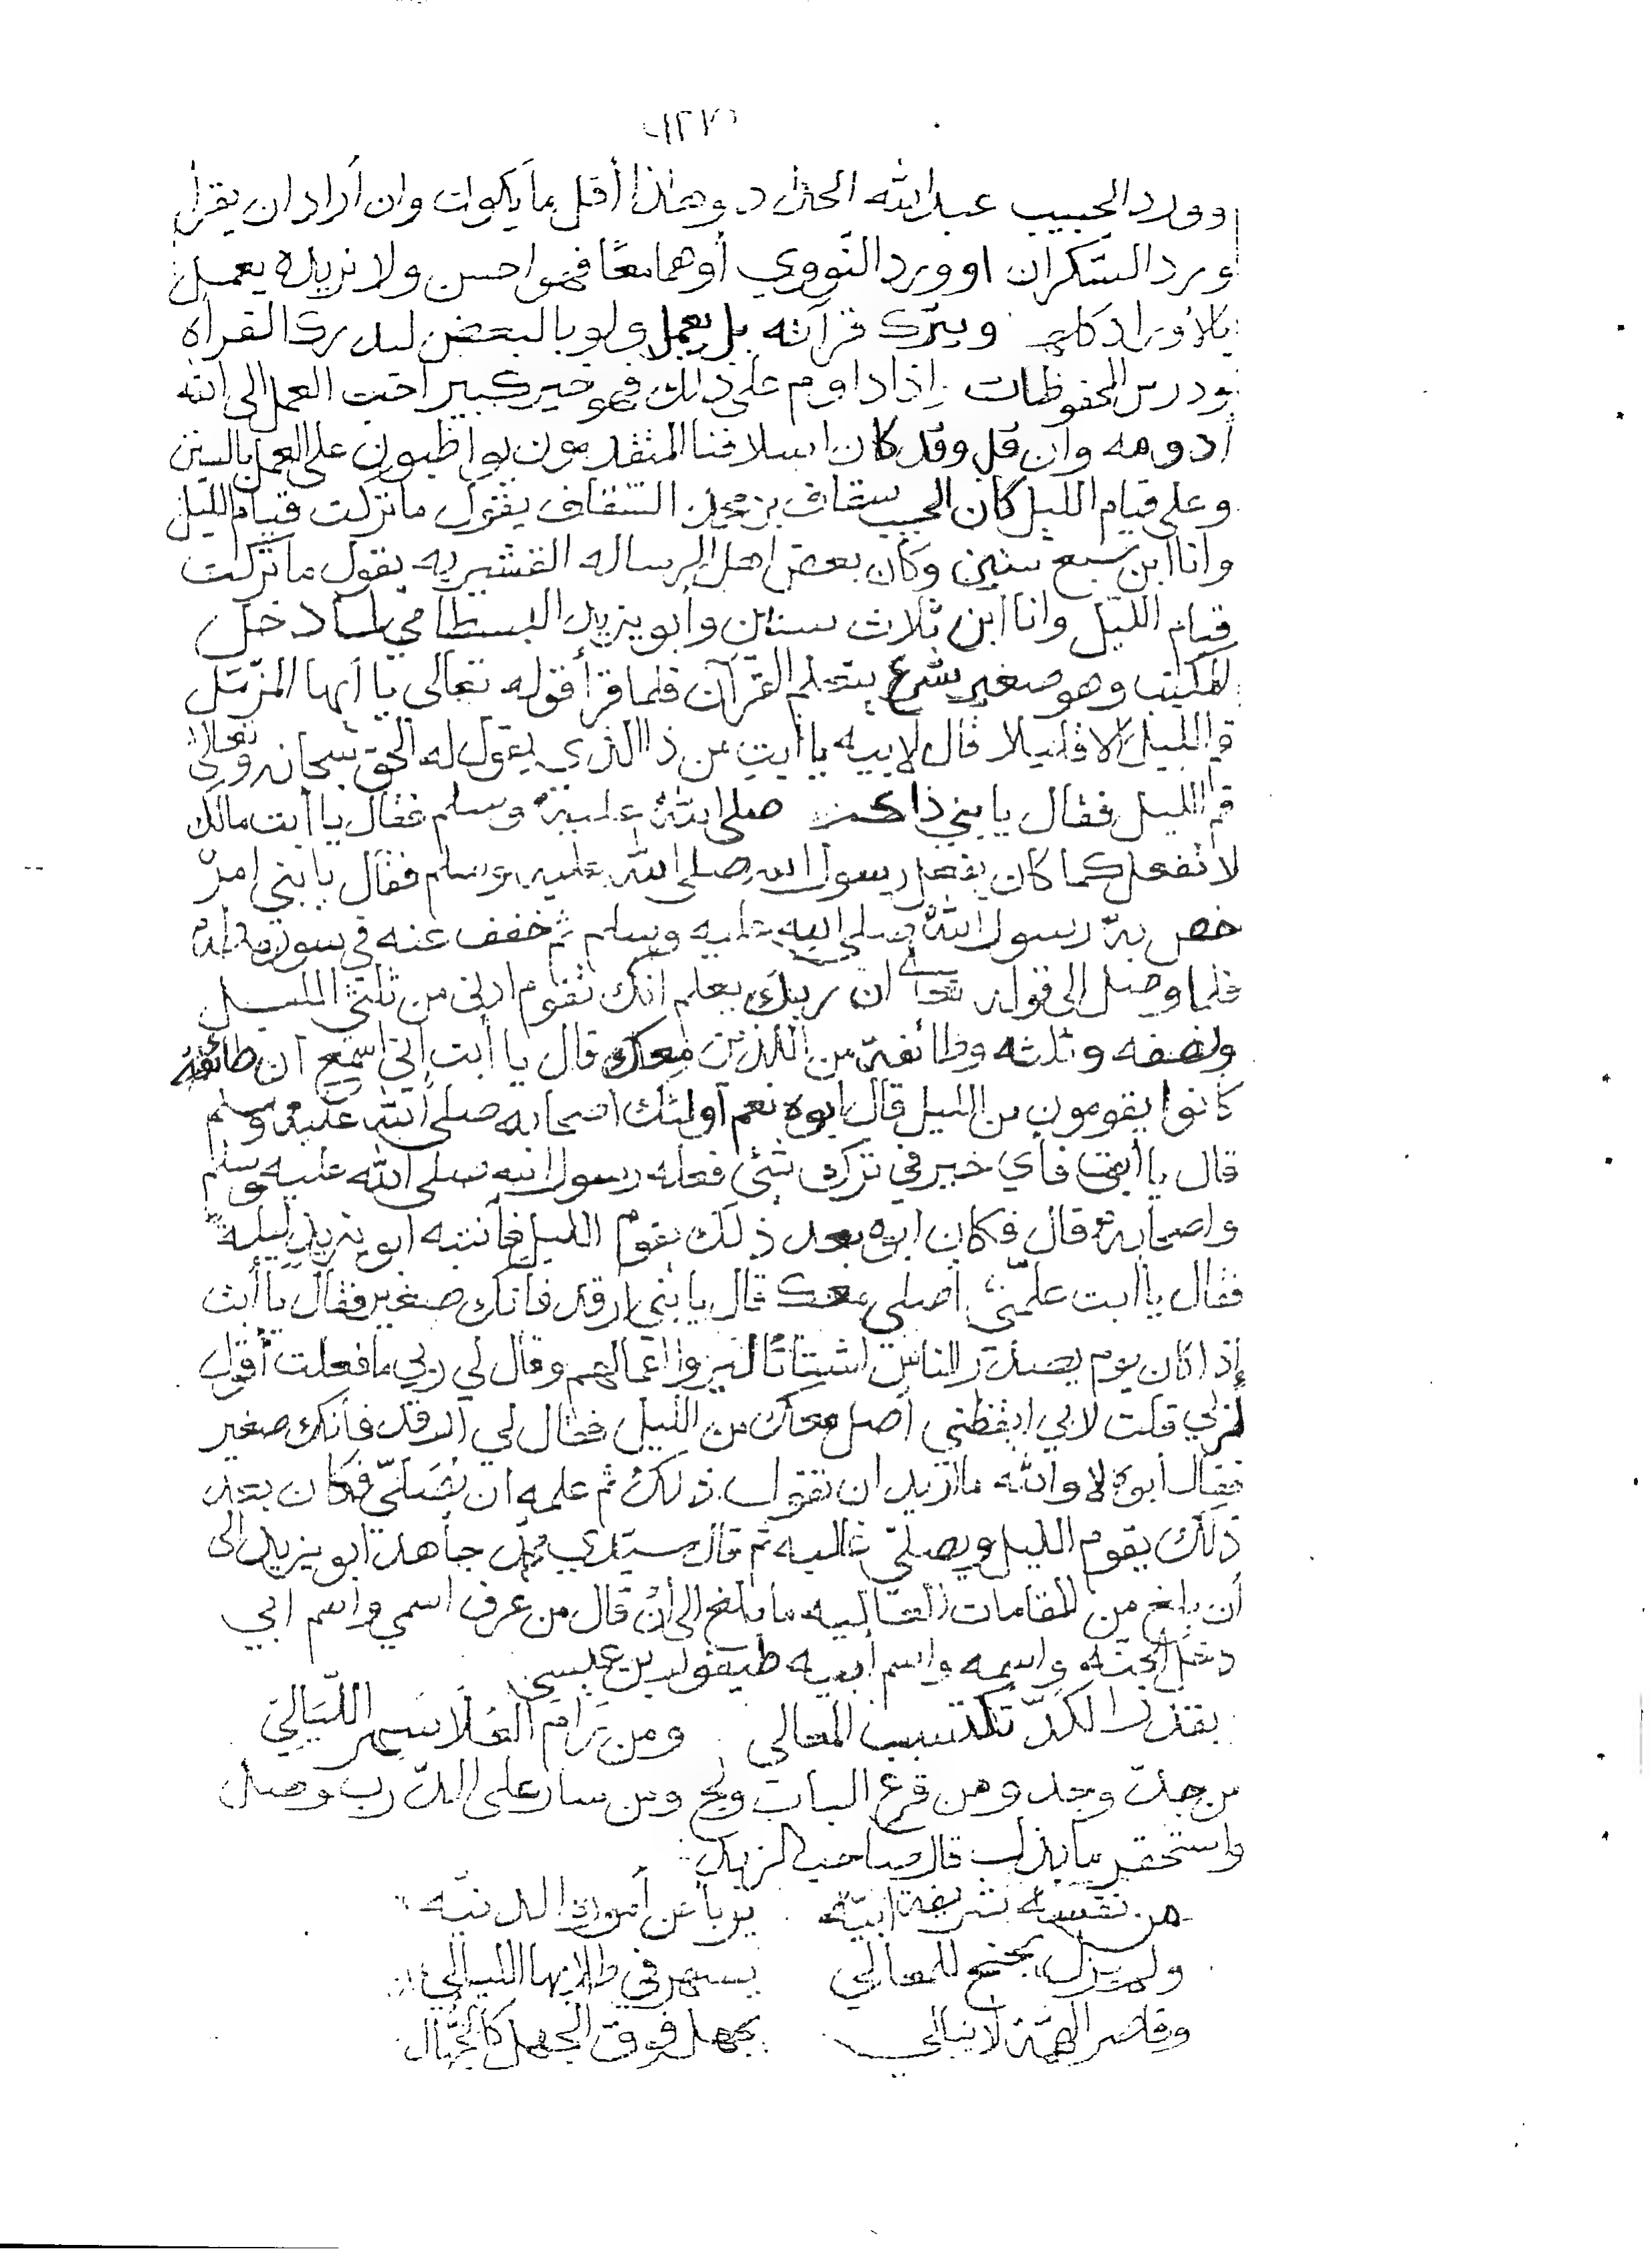 وورد الحبيب عبدالله الحداد وهذا أقل ما يكون وان أراد ان يقرأ
ورد السكران او ورد النووي أوهما معًا فهو احسن ولا نريده يعمل
بالأوراد كلها ويترك قرآنه بل يعمل ولو بالبعض ليدرك القراه
ودرس المحفوظات إذا داوم على ذالك فهو خير كبير احب العمل الى الله
أدومه وان قل وقد كان اسلافنا المتقدمون يواظبون على العمل بالسنن
وعلى قيام الليل كان الحبيب سقاف بن محمد السقاف يقول ما تركت قيام الليل
وانا ابن سبع سنين وكان بعض اهل الرساله القشيريه يقول ما تركت
قيام الليل وانا ابن ثلاث سنين وأبو يزيد البسطامي لما دخل
المكتب وهو صغير شرع يتعلم القرآن فلما قرأ قوله تعالى يا أيها المزّمّل
قم الليل الا قليلا قال لابيه يا أبت من ذا الذي يقول له الحق سبحانه وتعالى
قم الليل فقال يا بني ذاك صلى الله عليه وسلم فقال يا أبت مالك
لا تفعل كما كان يفعل رسول الله صلى الله عليه وسلم فقال يا بني امرٌ
خص به رسول الله صلى الله عليه وسلم ثم خفف عنه في سورة طه
فلما وصل الى قوله تعالى ان ربك يعلم انك تقوم ادنى من ثلثي الليل
ونصفه وثلثه وطائفة من اللذين معك قال يا أبت إني اسمع ان طائفة
كانوا يقومون من الليل قال ابوه نعم أولئك اصحابه صلى الله عليه وسلم
قال يا أبت فأي خير في ترك شئ فعله رسول الله صلى الله عليه وسلم
واصحابه قال فكان ابوه بعد ذلك يقوم الليل فأنتبه ابو يزيد ليلة
فقال يا أبت علمّني اصلي معك قال يا بني ارقد فانك صغير فقال يا أبت
إذا كان يوم يصدر الناس اشتاتًا ليروا اعمالهم وقال لي ربي ما فعلت أقول
لربي قلت لابي ايقظني أصل معك من الليل فقال لي ارقد فأنك صغير
فقال أبوه لا والله ما اريد ان تقول ذلك ثم علمه ان يُصَلّي فكان بعد
ذلك يقوم الليل ويصلي غالبه ثم قال سيدي محمد جاهد أبو يزيد الى
أن بلغ من المقامات العاليه ما بلغ الى أن قال من عرف اسمي واسم ابي
دخل الجنه واسمه واسم أبيه طيفور بن عيسى
بقدر الكدّ تكتسب المعالي ومن رام العُلا سهر اللّيَالي
من جدّ وجد ومن قرع الباب ولج ومن سار على الدرب وصل
واستحقر ما بذل قال صاحب الزبد
من نفسه شريفة ابيّه يربأ عن أموره الدنيّه
ولم يزل يجنح للمعالي يسهر في طلابها الليالي
وقاصر الهمّة لا يبالي يجهل فوق الجهل كالجُهّال